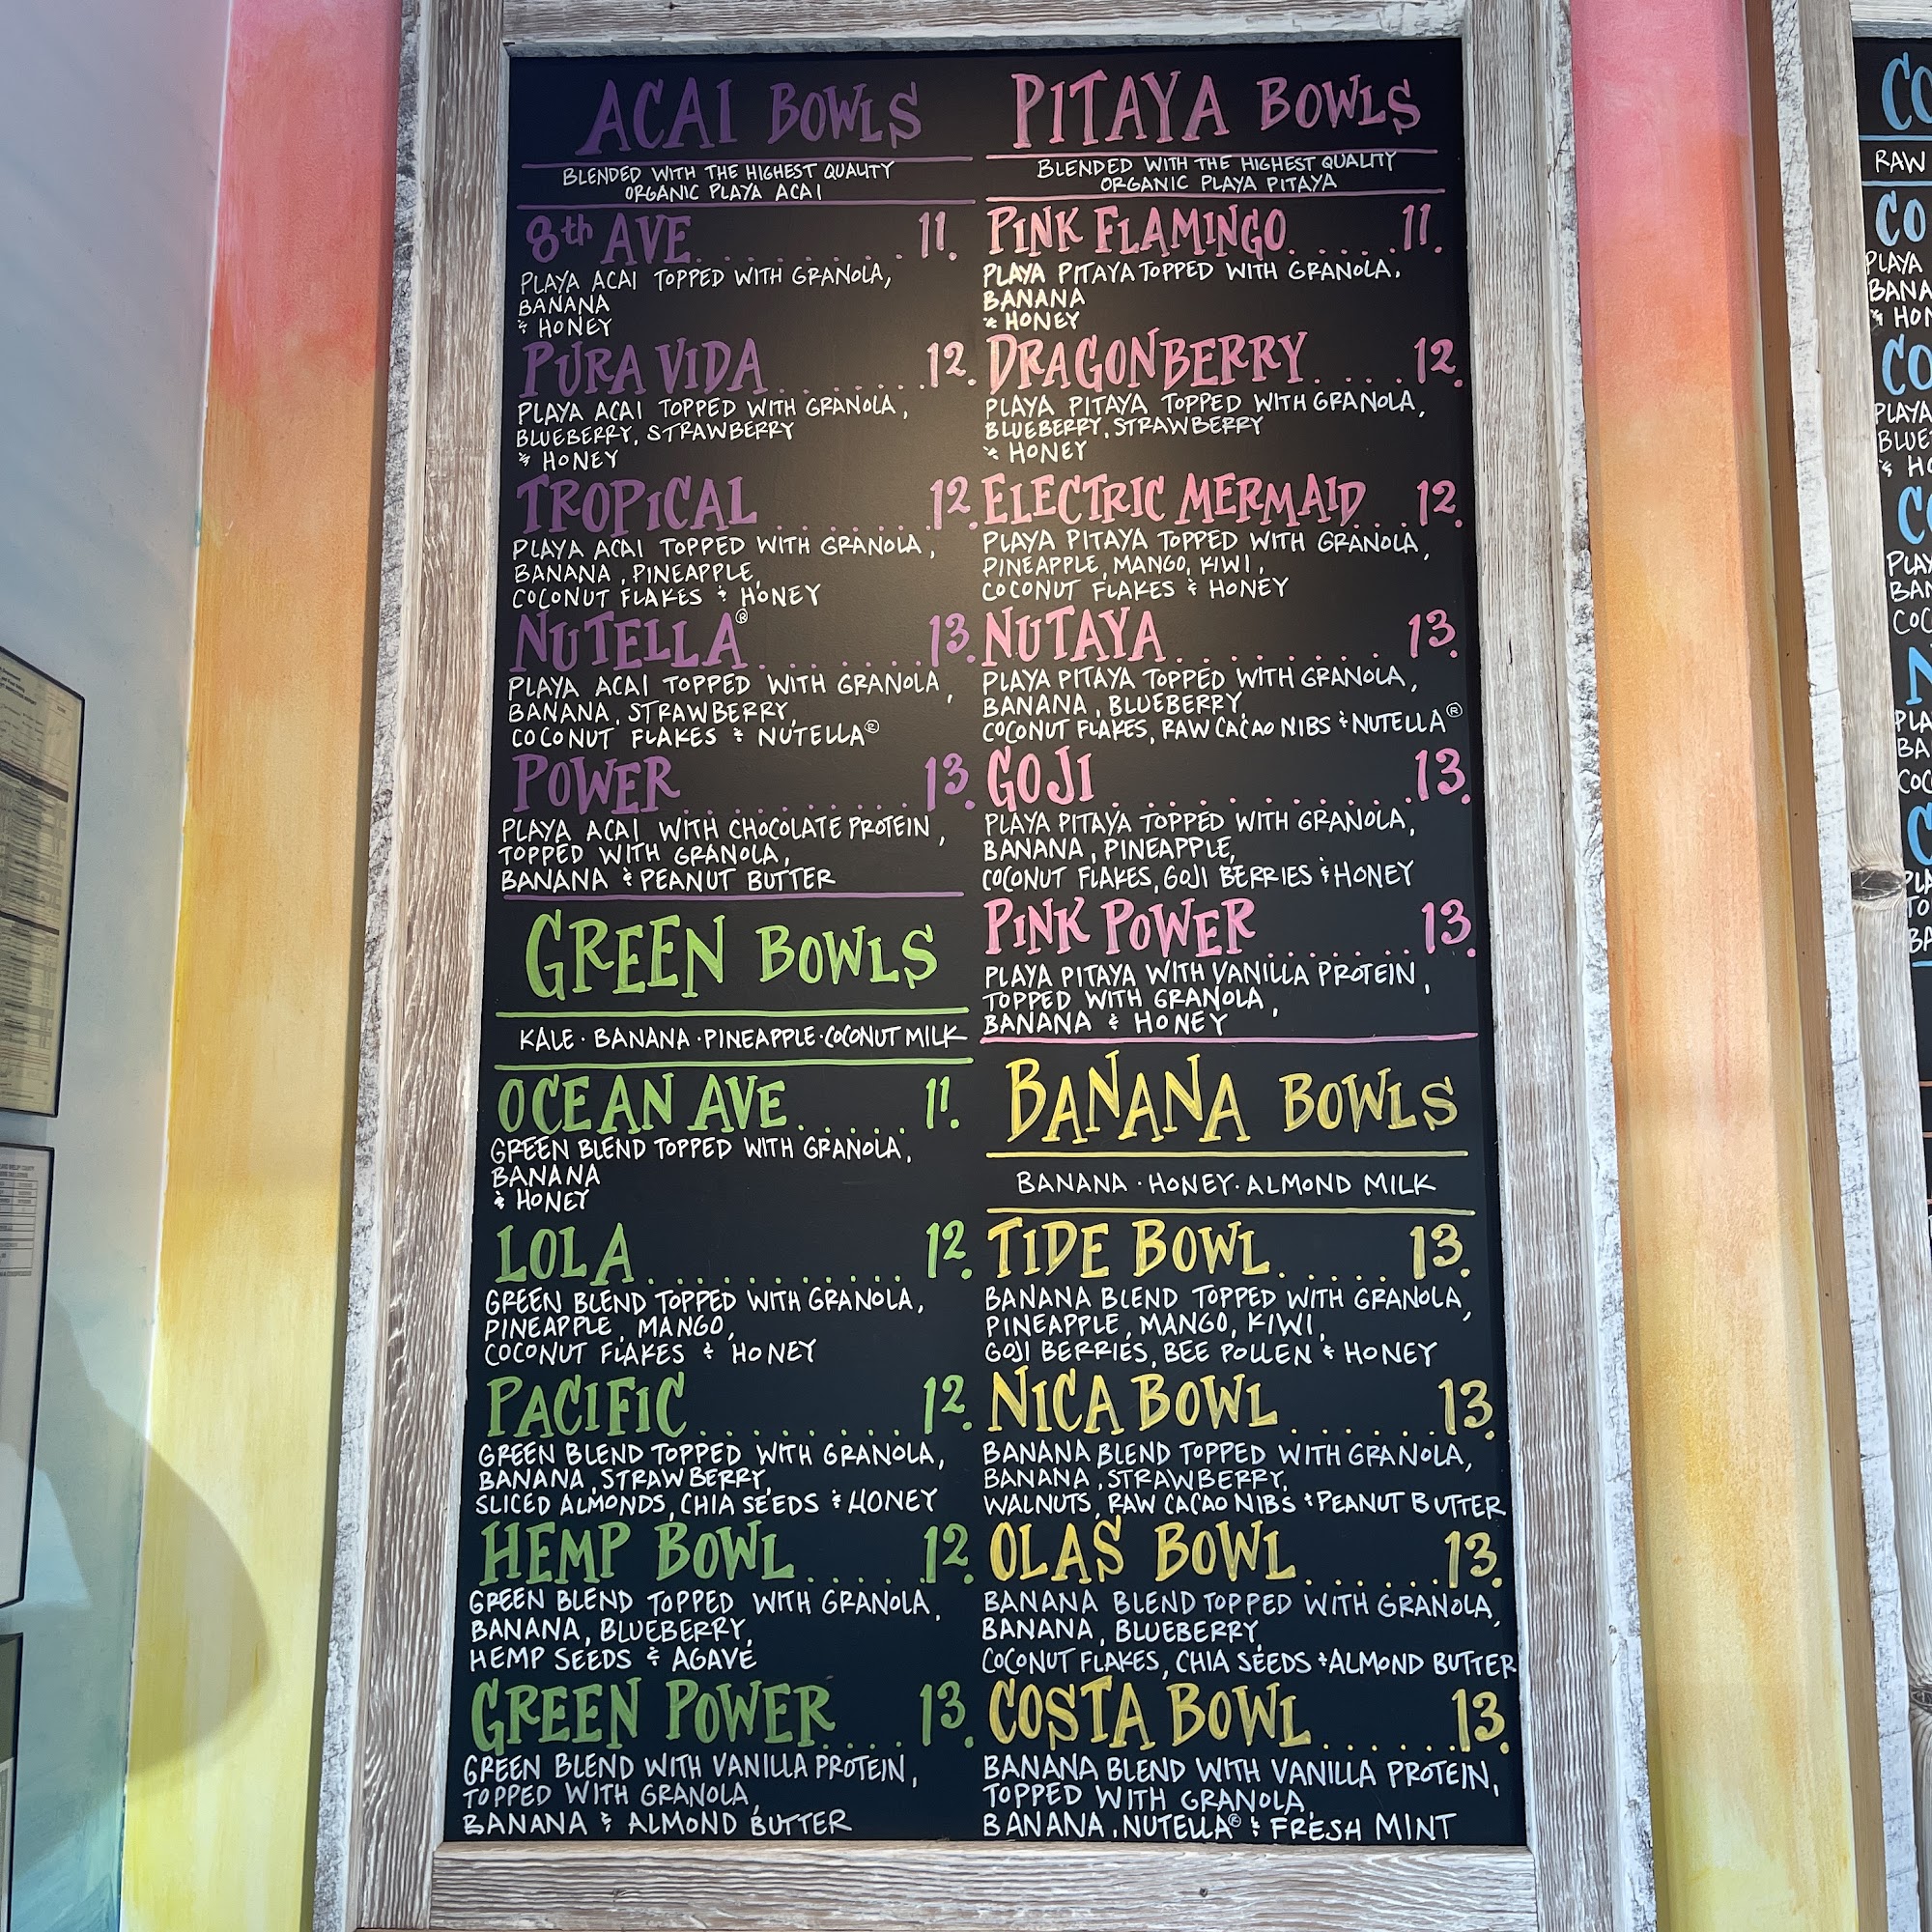 ACAI BOWLS
BLENDED WITH THE HIGHEST QUALITY
ORGANIC PLAYA ACAI
8th AVE. . . . . . . . . 11.
PLAYA ACAI TOPPED WITH GRANOLA,
BANANA
& HONEY
PURA VIDA . . . . . . . 12.
PLAYA ACAI TOPPED WITH GRANOLA,
BLUEBERRY, STRAWBERRY
& HONEY
TROPICAL . . . . . . . . 12.
PLAYA ACAI TOPPED WITH GRANOLA,
BANANA, PINEAPPLE,
COCONUT FLAKES & HONEY
NUTELLA® . . . . . . . 13.
PLAYA ACAI TOPPED WITH GRANOLA,
BANANA, STRAWBERRY,
COCONUT FLAKES & NUTELLA®
POWER . . . . . . . . . 13.
PLAYA ACAI WITH CHOCOLATE PROTEIN,
TOPPED WITH GRANOLA,
BANANA & PEANUT BUTTER
GREEN BOWLS
KALE · BANANA · PINEAPPLE · COCONUT MILK
OCEAN AVE . . . . . 11.
GREEN BLEND TOPPED WITH GRANOLA,
BANANA
& HONEY
LOLA . . . . . . . . . . . 12.
GREEN BLEND TOPPED WITH GRANOLA,
PINEAPPLE, MANGO,
COCONUT FLAKES & HONEY
PACIFIC . . . . . . . . . 12.
GREEN BLEND TOPPED WITH GRANOLA,
BANANA, STRAWBERRY,
SLICED ALMONDS, CHIA SEEDS & HONEY
HEMP BOWL . . . . . 12.
GREEN BLEND TOPPED WITH GRANOLA,
BANANA, BLUEBERRY,
HEMP SEEDS & AGAVE
GREEN POWER . . . . 13.
GREEN BLEND WITH VANILLA PROTEIN,
TOPPED WITH GRANOLA,
BANANA & ALMOND BUTTER
PITAYA BOWLS
BLENDED WITH THE HIGHEST QUALITY
ORGANIC PLAYA PITAYA
PINK FLAMINGO. . . . . 11.
PLAYA PITAYA TOPPED WITH GRANOLA,
BANANA
& HONEY
DRAGONBERRY . . . . 12.
PLAYA PITAYA TOPPED WITH GRANOLA,
BLUEBERRY, STRAWBERRY
& HONEY
ELECTRIC MERMAID . . . 12.
PLAYA PITAYA TOPPED WITH GRANOLA,
PINEAPPLE, MANGO, KIWI,
COCONUT FLAKES & HONEY
NUTAYA . . . . . . . . . 13.
PLAYA PITAYA TOPPED WITH GRANOLA,
BANANA, BLUEBERRY,
COCONUT FLAKES, RAW CACAO NIBS & NUTELLA®
GOJI . . . . . . . . . . . . 13.
PLAYA PITAYA TOPPED WITH GRANOLA,
BANANA, PINEAPPLE,
COCONUT FLAKES, GOJI BERRIES & HONEY
PINK POWER . . . . . . 13.
PLAYA PITAYA WITH VANILLA PROTEIN,
TOPPED WITH GRANOLA,
BANANA & HONEY
BANANA BOWLS
BANANA · HONEY · ALMOND MILK
TIDE BOWL . . . . . 13.
BANANA BLEND TOPPED WITH GRANOLA,
PINEAPPLE, MANGO, KIWI,
GOJI BERRIES, BEE POLLEN & HONEY
NICA BOWL . . . . . . 13.
BANANA BLEND TOPPED WITH GRANOLA,
BANANA, STRAWBERRY,
WALNUTS, RAW CACAO NIBS & PEANUT BUTTER
OLAS BOWL . . . . . . 13.
BANANA BLEND TOPPED WITH GRANOLA,
BANANA, BLUEBERRY,
COCONUT FLAKES, CHIA SEEDS & ALMOND BUTTER
COSTA BOWL . . . . . . 13.
BANANA BLEND WITH VANILLA PROTEIN,
TOPPED WITH GRANOLA,
BANANA, NUTELLA® & FRESH MINT
RAW
PLAYA